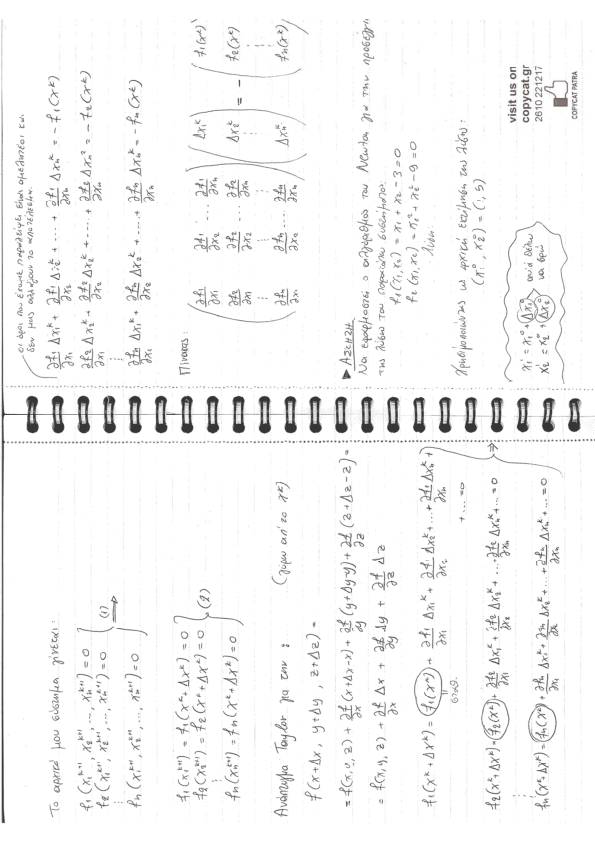 Το αρχικό μου σύστημα γίνεται:
f₁(x₁ᵏ⁺¹, x₂ᵏ⁺¹, ..., xₙᵏ⁺¹) = 0
f₂(x₁ᵏ⁺¹, x₂ᵏ⁺¹, ..., xₙᵏ⁺¹) = 0 (1) ⇒
⋮
fₙ(x₁ᵏ⁺¹, x₂ᵏ⁺¹, ..., xₙᵏ⁺¹) = 0
f₁(xᵏ⁺¹) = f₁(xᵏ+Δxᵏ) = 0
f₂(xᵏ⁺¹) = f₂(xᵏ+Δxᵏ) = 0 (2)
⋮
fₙ(xᵏ⁺¹) = fₙ(xᵏ+Δxᵏ) = 0
Ανάπτυγμα Taylor για την : (γύρω απ' το xᵏ)
f(x+Δx, y+Δy, z+Δz) =
= f(x,y,z) + ∂f/∂x (x+Δx-x) + ∂f/∂y (y+Δy-y) + ∂f/∂z (z+Δz-z) =
= f(x,y,z) + ∂f/∂x Δx + ∂f/∂y Δy + ∂f/∂z Δz
f₁(xᵏ+Δxᵏ) = f₁(xᵏ) + ∂f₁/∂x₁ Δx₁ᵏ + ∂f₁/∂x₂ Δx₂ᵏ + ... + ∂f₁/∂xₙ Δxₙᵏ +
+ ... = 0
σταθ.
f₂(xᵏ+Δxᵏ) = f₂(xᵏ) + ∂f₂/∂x₁ Δx₁ᵏ + ∂f₂/∂x₂ Δx₂ᵏ + ... ∂f₂/∂xₙ Δxₙᵏ + ... = 0 ⇒
⋮
fₙ(xᵏ+Δxᵏ) = fₙ(xᵏ) + ∂fₙ/∂x₁ Δx₁ᵏ + ∂fₙ/∂x₂ Δx₂ᵏ + ... + ∂fₙ/∂xₙ Δxₙᵏ + ... = 0
οι όροι που έχουμε παραλείψει είναι αμελητέοι και
δεν μας αλλάζουν το αποτέλεσμα.
∂f₁/∂x₁ Δx₁ᵏ + ∂f₁/∂x₂ Δx₂ᵏ + ... + ∂f₁/∂xₙ Δxₙᵏ = -f₁(xᵏ)
∂f₂/∂x₁ Δx₁ᵏ + ∂f₂/∂x₂ Δx₂ᵏ + ... + ∂f₂/∂xₙ Δxₙᵏ = -f₂(xᵏ)
⋮
∂fₙ/∂x₁ Δx₁ᵏ + ∂fₙ/∂x₂ Δx₂ᵏ + ... + ∂fₙ/∂xₙ Δxₙᵏ = -fₙ(xᵏ)
Πίνακας:
(∂f₁/∂x₁ ∂f₁/∂x₂ ... ∂f₁/∂xₙ) (Δx₁ᵏ) (f₁(xᵏ))
(∂f₂/∂x₁ ∂f₂/∂x₂ ... ∂f₂/∂xₙ) (Δx₂ᵏ) = - (f₂(xᵏ))
⋮
(∂fₙ/∂x₁ ∂fₙ/∂x₂ ... ∂fₙ/∂xₙ) (Δxₙᵏ) (fₙ(xᵏ))
▶ ΑΣΚΗΣΗ
Να εφαρμοστεί ο αλγόριθμος του Newton για την προσέγγι
της λύσης του παρακάτω συστήματος:
f₁(x₁,x₂) = x₁ + x₂ - 3 = 0
f₂(x₁,x₂) = x₁² + x₂² - 9 = 0
Λύση
Χρησιμοποιώντας ως αρχική εκτίμηση της λύσης:
(x₁⁰, x₂⁰) = (1, 5)
x₁¹ = x₁⁰ + Δx₁⁰ αυτά θέλω
x₂¹ = x₂⁰ + Δx₂⁰ να βρω
visit us on
copycat.gr
2610 221217
COPYCAT PATRA